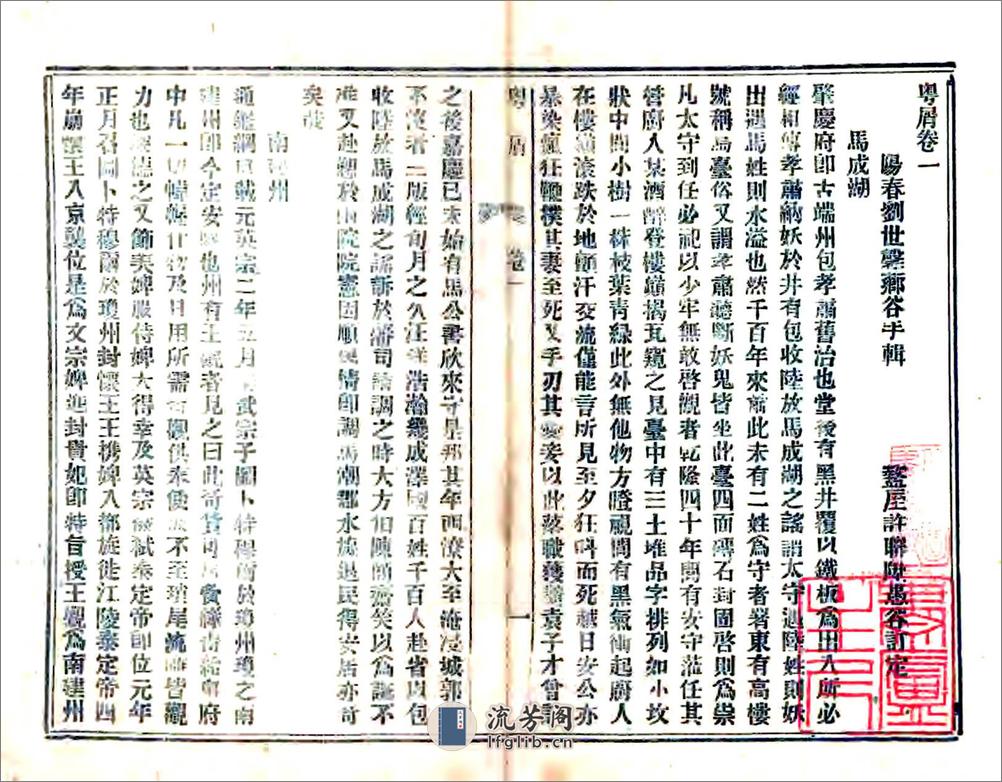 粤屑卷一
陽春劉世馨鄉谷手輯 盩厔許聯陞愚谷訂定
馬成湖
肇慶府即古端州包孝肅舊治也堂後有黑井覆以鐵板為出入所必
經相傳孝肅納妖於井有包收陸放馬成湖之謠謂太守遇陸姓則妖
出遇馬姓則水溢也然千百年來肅此未有二姓為守者署東有高樓
號稱烏臺俗又謂孝肅聽斷妖鬼皆坐此臺四面磚石封固啓則為祟
凡太守到任必祀以少牢無敢啓觀者乾隆四十年間有安守蒞任其
管廚人某酒醉登樓巔揭瓦窺之見臺中有三土堆品字排列如小坟
狀中間小樹一株枝葉青綠此外無他物方瞪視間有黑氣衝起廚人
在樓巔滾跌於地顫汗交流僅能言所見至夕狂叫而死越日安公亦
暴染瘋狂鞭撲其妻至死又手刃其妾以此落職獲譴袁子才曾記
之後嘉慶己未始有馬公書欣來守是郡其年西潦大至淹浸城郭
不沒者二版經旬月之久汪洋浩瀚幾成澤國百姓千百人赴省以包
收陸放馬成湖之謠訴於藩司請調之時大方伯陳 笑以為誕不
准又赴愬於 院院憲因順輿情即調馬潮郡水旋退民得安居亦奇
矣哉
南建州
通鑑綱目載元英宗二年五月 武宗子圖卜特穆爾於瓊州瓊之南
建州即今定安縣也州有王觀者見之曰此奇貨可居 府
中凡一切幃幄什物及日用所需 觀供來使 不至瑣尾流離皆觀
力也 德之又飾美婢服侍婢大得幸及英宗被弒泰定帝即位元年
正月召圖卜特穆爾於瓊州封懷王王攜婢入都旋徙江陵泰定帝四
年崩懷王入京襲位是為文宗婢進封貴妃即特旨授王觀為南建州
粤屑 卷一 一
流芳閣
lfglib.cn